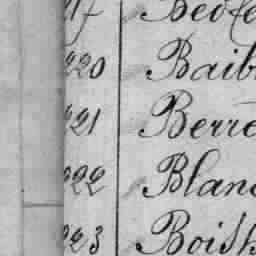 220 Baib
221 Berre
222 Blan
223 Boish